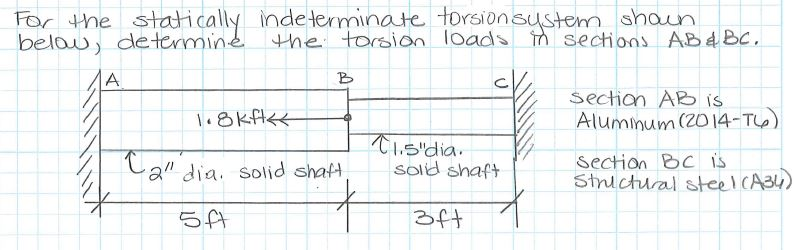 For the statically indeterminate torsion system shown
below, determine the torsion loads in sections AB & BC.
A
B
C
1.8kft
2" dia. solid shaft
1.5" dia.
solid shaft
5ft
3ft
section AB is
Aluminum (2014-T6)
section BC is
Structural steel (A36)